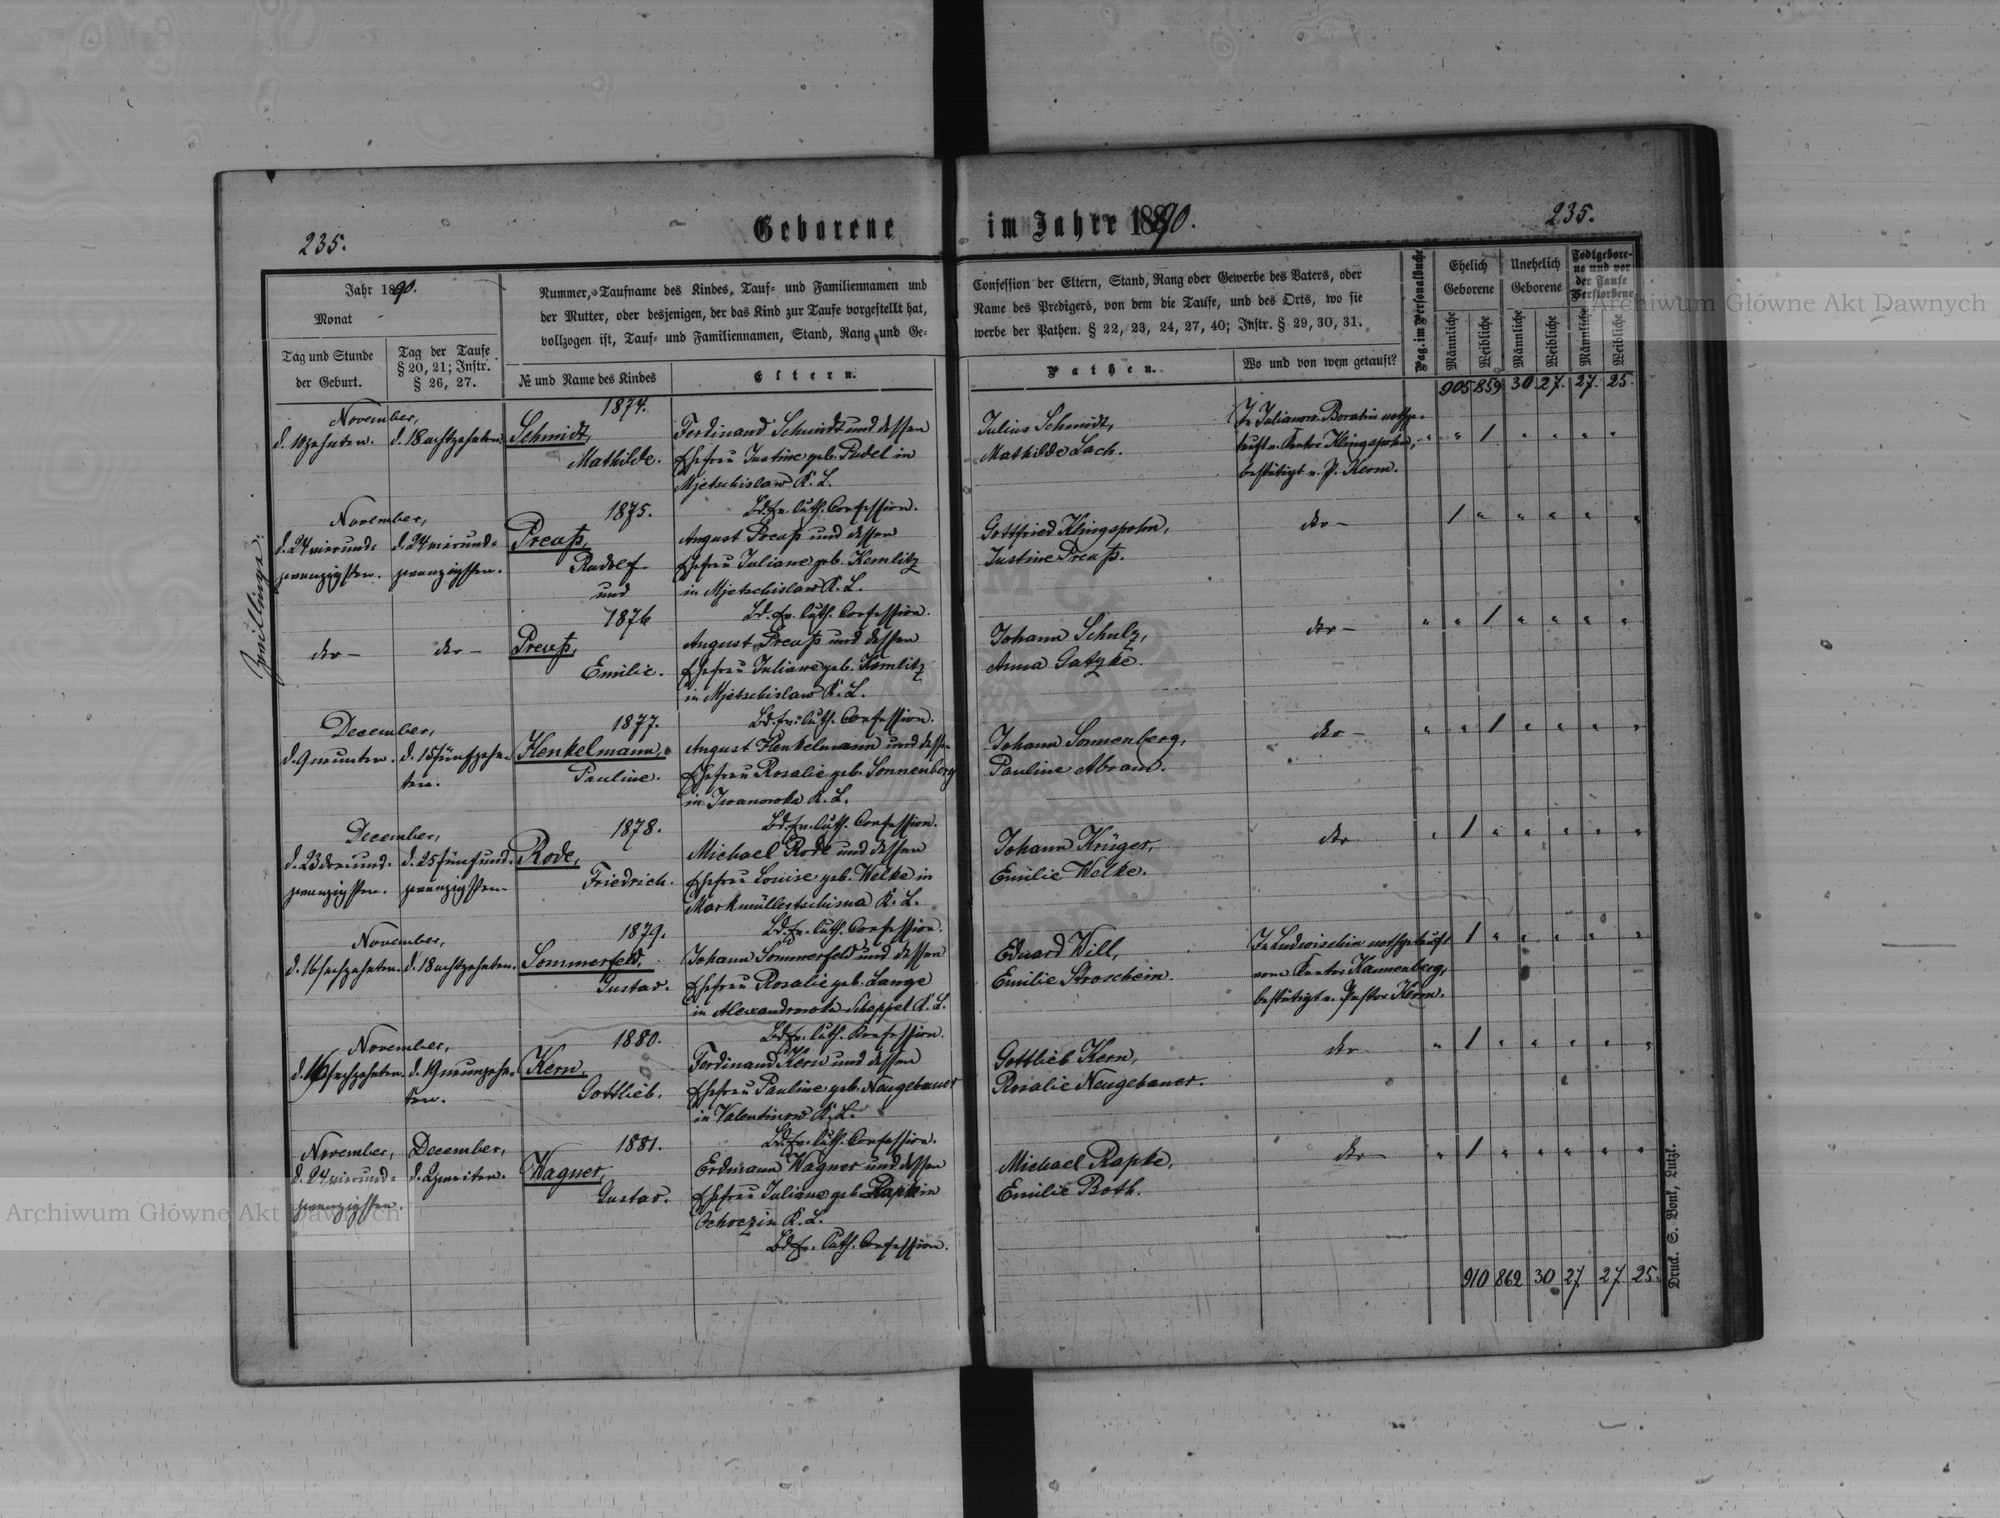 235.
Geborene im Jahre 1890.
235.
Jahr 1890.
Monat
Tag und Stunde
der Geburt.
Tag der Taufe
§ 20, 21; Instr.
§ 26, 27.
Nummer, Taufname des Kindes, Tauf- und Familiennamen und
der Mutter, oder desjenigen, der das Kind zur Taufe vorgestellt hat,
vollzogen ist, Tauf- und Familiennamen, Stand, Rang und Ge-
№ und Name des Kindes
Eltern.
Confession der Eltern, Stand, Rang oder Gewerbe des Vaters, oder
Name des Predigers, von dem die Taufe, und des Orts, wo sie
werbe der Pathen. § 22, 23, 24, 27, 40; Instr. § 29, 30, 31.
Pathen.
Wo und von wem getauft?
Pag. im Personalbuche
Ehelich
Geborene
Unehelich
Geborene
Todtgebore-
ne und vor
der Taufe
Verstorbene
Männliche
Weibliche
Männliche
Weibliche
Männliche
Weibliche
905 859 30 27. 27. 25.
November,
d. 10 zehnten. d. 18 achtzehnten.
1874.
Schmidt,
Mathilde.
Ferdinand Schmidt und dessen
Ehefrau Justine geb. Pudel in
Mjetschislaw K. L.
Bd. Ev. luth. Confession.
Julius Schmidt,
Mathilde Lach.
In Julianow-Boratin nothge-
tauft v. Kantor Klingspohn,
bestätigt v. P. Kerm.
Zwillinge.
November,
d. 24 vierund- d. 24 vierund-
zwanzigsten. zwanzigsten.
1875.
Preuß,
Rudolf
und
August Preuß und dessen
Ehefrau Juliane geb. Kemlitz
in Mjetschislaw K. L.
Bd. Ev. luth. Confession.
Gottfried Klingspohn,
Justine Preuß.
dto —
dto — dto —
1876
Preuß,
Emilie.
August Preuß und dessen
Ehefrau Juliane geb. Kemlitz
in Mjetschislaw K. L.
Bd. Ev. luth. Confession.
Johann Schulz,
Anna Gatzke.
dto —
December,
d. 9 neunten. d. 15 fünfzehn-
ten.
1877.
Henkelmann,
Pauline.
August Henkelmann und dessen
Ehefrau Rosalie geb. Sonnenberg
in Iwanowka K. L.
Bd. Ev. luth. Confession.
Johann Sonnenberg,
Pauline Abram.
dto —
December,
d. 23 dreiund- d. 25 fünfund-
zwanzigsten. zwanzigsten.
1878.
Rode,
Friedrich.
Michael Rode und dessen
Ehefrau Louise geb. Welke in
Markmüllertschisna K. L.
Bd. Ev. luth. Confession.
Johann Krüger,
Emilie Welke.
dto
November,
d. 16 sechzehnten. d. 18 achtzehnten.
1879.
Sommerfeld,
Gustav.
Johann Sommerfeld und dessen
Ehefrau Rosalie geb. Lange
in Alexandrowka Schoppel K. L.
Bd. Ev. luth. Konfession.
Eduard Will,
Emilie Stroschein.
In Ludwischin nothgetauft
vom Kantor Kannenberg,
bestätigt v. Pastor Kerm.
November,
d. 16 sechzehnten. d. 19 neunzehn-
ten.
1880.
Kern,
Gottlieb.
Ferdinand Kern und dessen
Ehefrau Pauline geb. Neugebauer
in Valentinow K. L.
Bd. Ev. luth. Confession.
Gottlieb Kern,
Rosalie Neugebauer.
dto
November, December,
d. 24 vierund- d. 2 zweiten.
zwanzigsten.
1881.
Wagner,
Gustav.
Erdmann Wagner und dessen
Ehefrau Juliane geb. Rapke in
Ochoczin K. L.
Bd. Ev. luth. Confession.
Michael Rapke,
Emilie Both.
dto —
910 862 30 27. 27. 25.
Druck. S. Bonk, Lutzk.
Archiwum Główne Akt Dawnych
Archiwum Główne Akt Dawnych